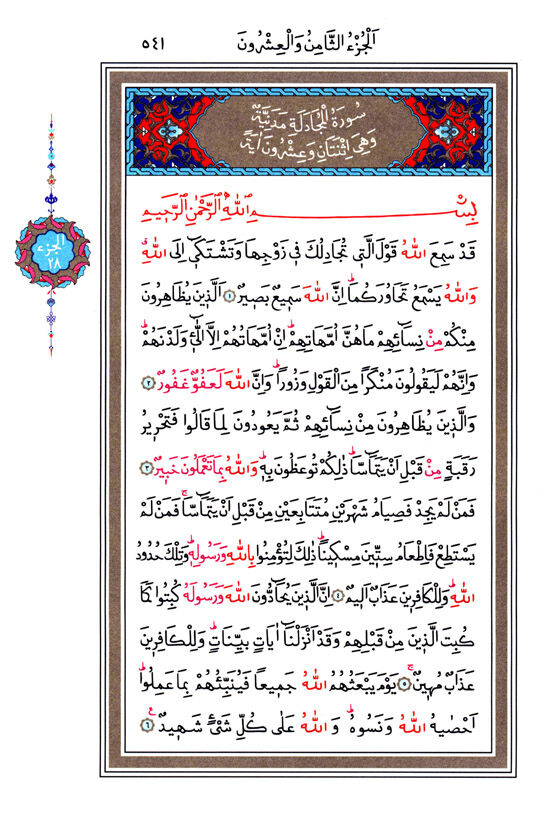 اَلْجُزْءُ الثَّامِنُ وَالْعِشْرُونَ ٥٤١
سُورَةُ الْمُجَادَلَةِ مَدَنِيَّةٌ
وَهِيَ اِثْنَتَانِ وَعِشْرُونَ اٰيَةً
الجزء
٢٨
بِسْــــــــــمِ اللّٰهِ الرَّحْمٰنِ الرَّحِيمِ
قَدْ سَمِعَ اللّٰهُ قَوْلَ الَّتِي تُجَادِلُكَ فِي زَوْجِهَا وَتَشْتَكِي اِلَى اللّٰهِۗ
وَاللّٰهُ يَسْمَعُ تَحَاوُرَكُمَاۜ اِنَّ اللّٰهَ سَمِيعٌ بَصِيرٌ ﴿١﴾ اَلَّذِينَ يُظَاهِرُونَ
مِنْكُمْ مِنْ نِسَٓائِهِمْ مَا هُنَّ اُمَّهَاتِهِمْۜ اِنْ اُمَّهَاتُهُمْ اِلَّا الّٰٓـِٔي وَلَدْنَهُمْۜ
وَاِنَّهُمْ لَيَقُولُونَ مُنْكَرًا مِنَ الْقَوْلِ وَزُورًاۜ وَاِنَّ اللّٰهَ لَعَفُوٌّ غَفُورٌ ﴿٢﴾
وَالَّذِينَ يُظَاهِرُونَ مِنْ نِسَٓائِهِمْ ثُمَّ يَعُودُونَ لِمَا قَالُوا فَتَحْرِيرُ
رَقَبَةٍ مِنْ قَبْلِ اَنْ يَتَمَٓاسَّاۜ ذٰلِكُمْ تُوعَظُونَ بِهٖۜ وَاللّٰهُ بِمَا تَعْمَلُونَ خَبِيرٌ ﴿٣﴾
فَمَنْ لَمْ يَجِدْ فَصِيَامُ شَهْرَيْنِ مُتَتَابِعَيْنِ مِنْ قَبْلِ اَنْ يَتَمَٓاسَّاۚ فَمَنْ لَمْ
يَسْتَطِعْ فَاِطْعَامُ سِتِّينَ مِسْكِينًاۜ ذٰلِكَ لِتُؤْمِنُوا بِاللّٰهِ وَرَسُولِهٖۜ وَتِلْكَ حُدُودُ
اللّٰهِۜ وَلِلْكَافِرِينَ عَذَابٌ اَلِيمٌ ﴿٤﴾ اِنَّ الَّذِينَ يُحَٓادُّونَ اللّٰهَ وَرَسُولَهُ كُبِتُوا كَمَا
كُبِتَ الَّذِينَ مِنْ قَبْلِهِمْ وَقَدْ اَنْزَلْنَٓا اٰيَاتٍ بَيِّنَاتٍۜ وَلِلْكَافِرِينَ
عَذَابٌ مُهِينٌۚ ﴿٥﴾ يَوْمَ يَبْعَثُهُمُ اللّٰهُ جَمِيعًا فَيُنَبِّئُهُمْ بِمَا عَمِلُواۜ
اَحْصٰيهُ اللّٰهُ وَنَسُوهُۜ وَاللّٰهُ عَلٰى كُلِّ شَيْءٍ شَهِيدٌ۟ ﴿٦﴾